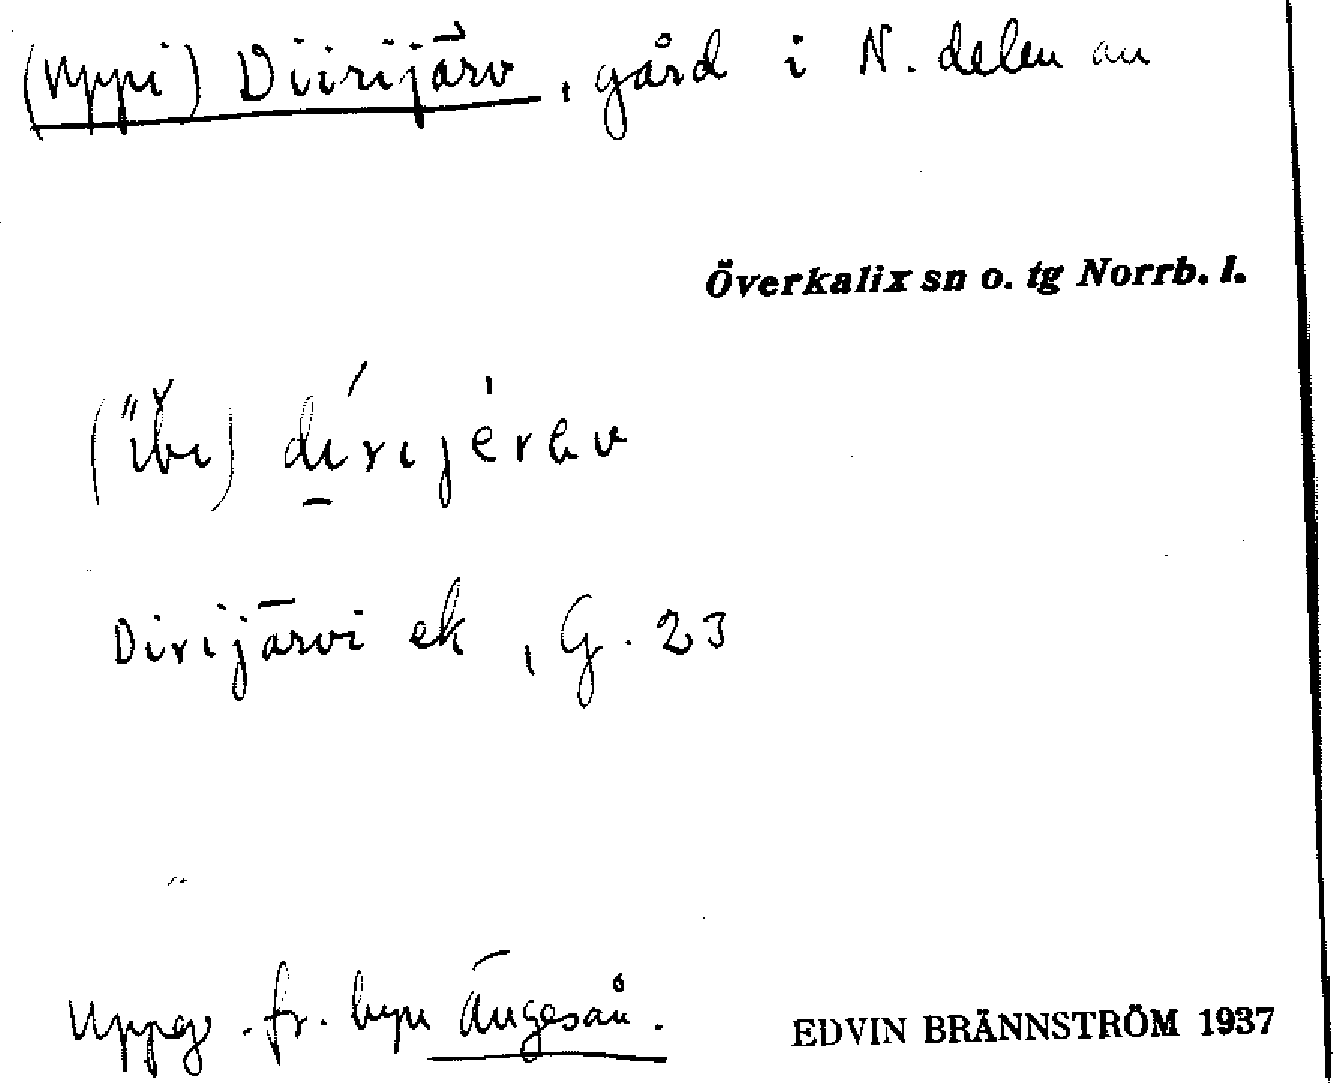 (Uppi) Diirijärv, gård i N. delen av
Överkalix sn o. tg Norrb. l.
(ïbı) dírıjèrəv
Dirijärvi ek, G. 23
Uppg. fr. byn Ängeså.
EDVIN BRÄNNSTRÖM 1937